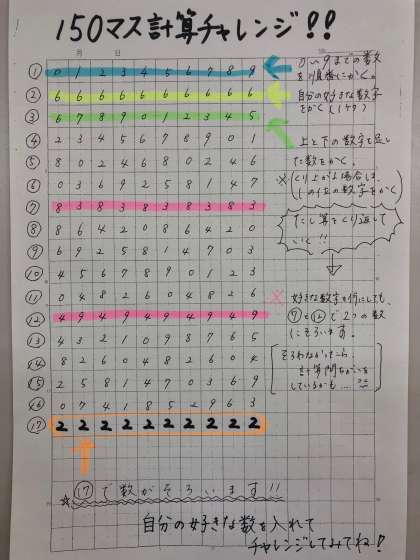 150マス計算チャレンジ!!
月 日
① 0 1 2 3 4 5 6 7 8 9
② 6 6 6 6 6 6 6 6 6 6
③ 6 7 8 9 0 1 2 3 4 5
④ 2 3 4 5 6 7 8 9 0 1
⑤ 8 0 2 4 6 8 0 2 4 6
⑥ 0 3 6 9 2 5 8 1 4 7
⑦ 8 3 8 3 8 3 8 3 8 3
⑧ 8 6 4 2 0 8 6 4 2 0
⑨ 6 9 2 5 8 1 4 7 0 3
⑩ 4 5 6 7 8 9 0 1 2 3
⑪ 0 4 8 2 6 0 4 8 2 6
⑫ 4 9 4 9 4 9 4 9 4 9
⑬ 4 3 2 1 0 9 8 7 6 5
⑭ 8 2 6 0 4 8 2 6 0 4
⑮ 2 5 8 1 4 7 0 3 6 9
⑯ 0 7 4 1 8 5 2 9 6 3
⑰ 2 2 2 2 2 2 2 2 2 2
0〜9までの数を
順番にかく。
自分の好きな数字
をかく(1ケタ)
上と下の数字を足し
た数をかく。
※(くり上がる場合は、
1の位の数字をかく)
たし算をくり返して
いく!!
※ 好きな数字を何にしても、
⑦と⑫で2つの数
にそろいます。
そろわなかったら
計算間ちがいを
しているかも....
☆⑰で数がそろいます!!
自分の好きな数を入れて
チャレンジしてみてね!